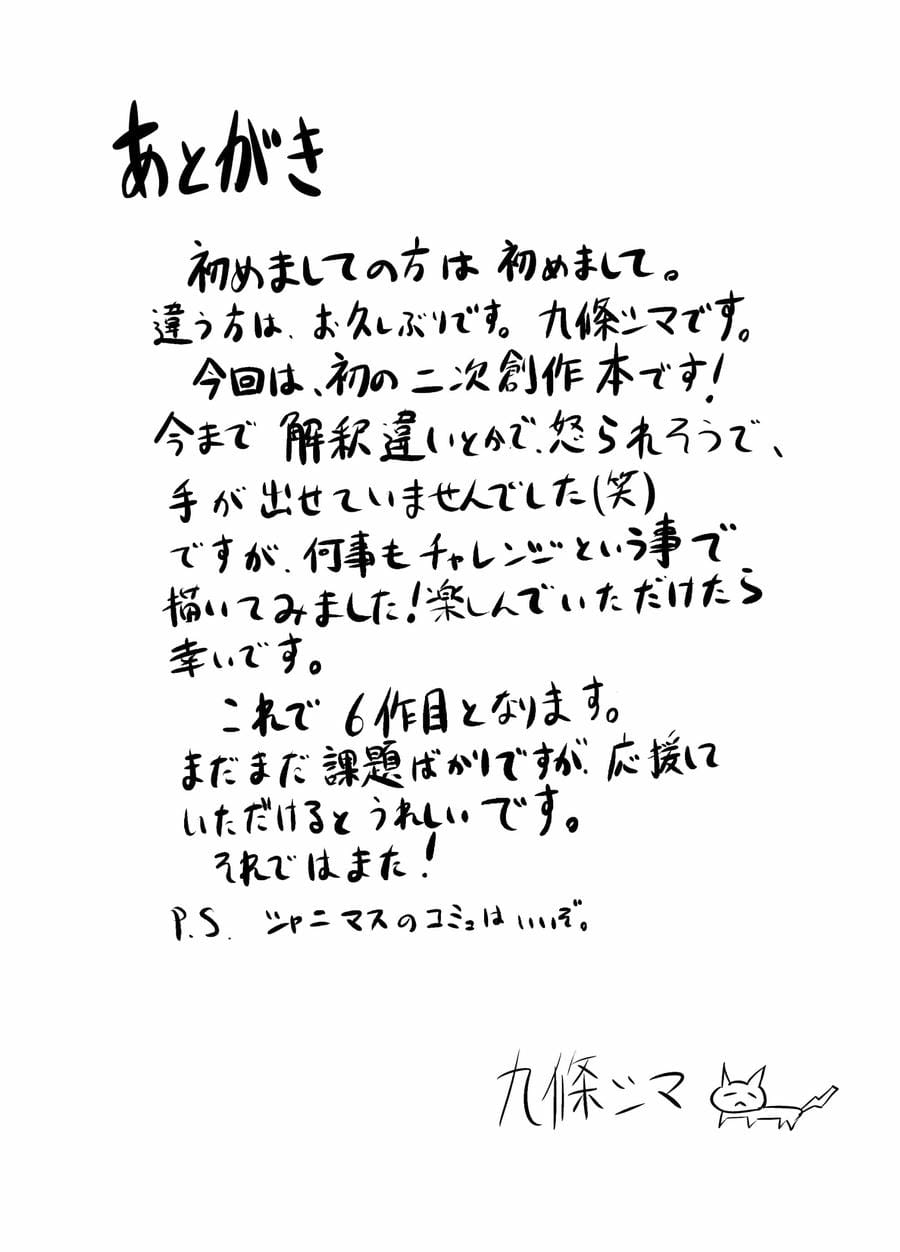 あとがき
初めましての方は 初めまして。
違う方は、お久しぶりです。九條シマです。
今回は、初の二次創作本です!
今まで 解釈違いとかで、怒られそうで、
手が出せていませんでした(笑)
ですが、何事もチャレンジという事で
描いてみました!楽しんでいただけたら
幸いです。
これで 6作目となります。
まだまだ課題ばかりですが、応援して
いただけるとうれしいです。
それではまた!
P.S. シャニマスのコミュはいいぞ。
九條シマ